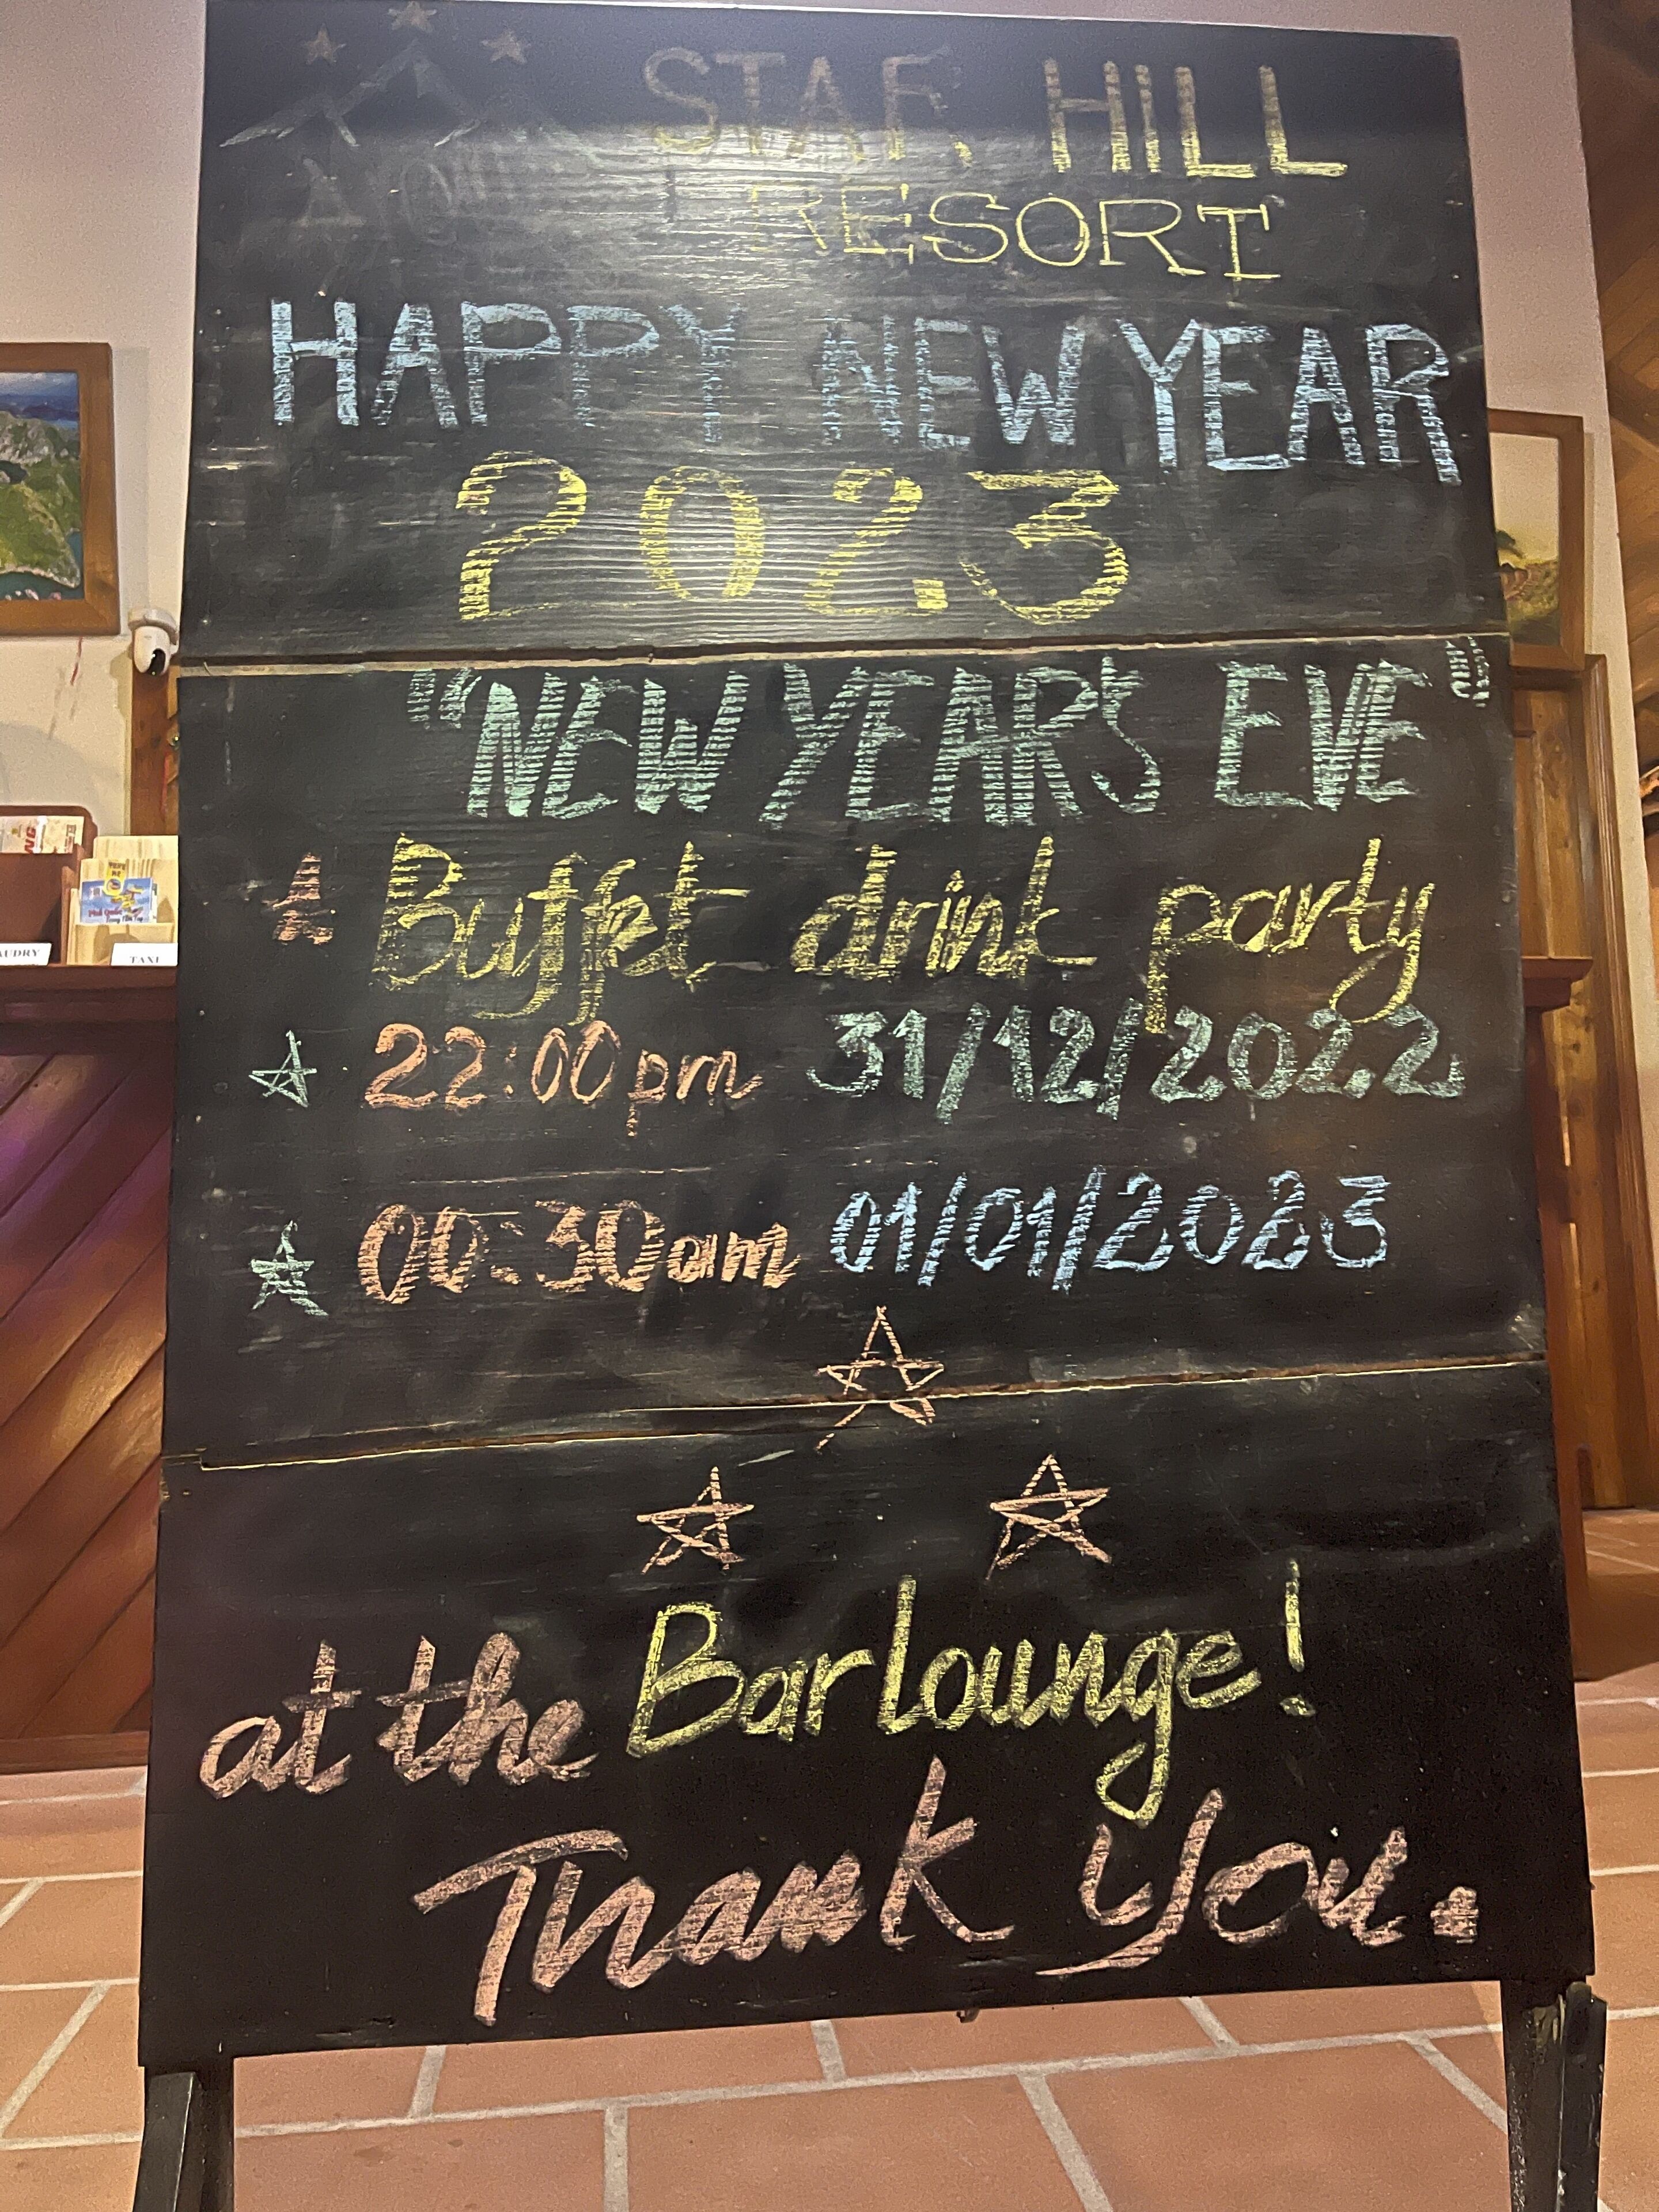 STAR HILL
RESORT
HAPPY NEW YEAR
2023
"NEW YEAR'S EVE"
Buffet drink party
22:00pm 31/12/2022
00:30am 01/01/2023
at the Barlounge!
Thank you.
TAXI